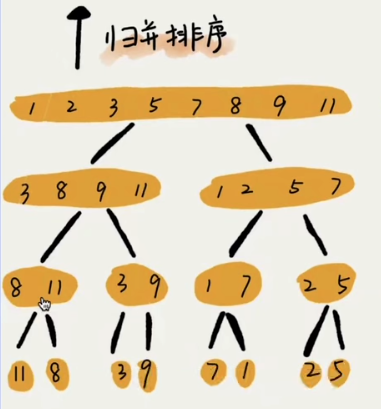 归并排序
1 2 3 5 7 8 9 11
3 8 9 11 1 2 5 7
8 11 3 9 1 7 2 5
11 8 3 9 7 1 2 5